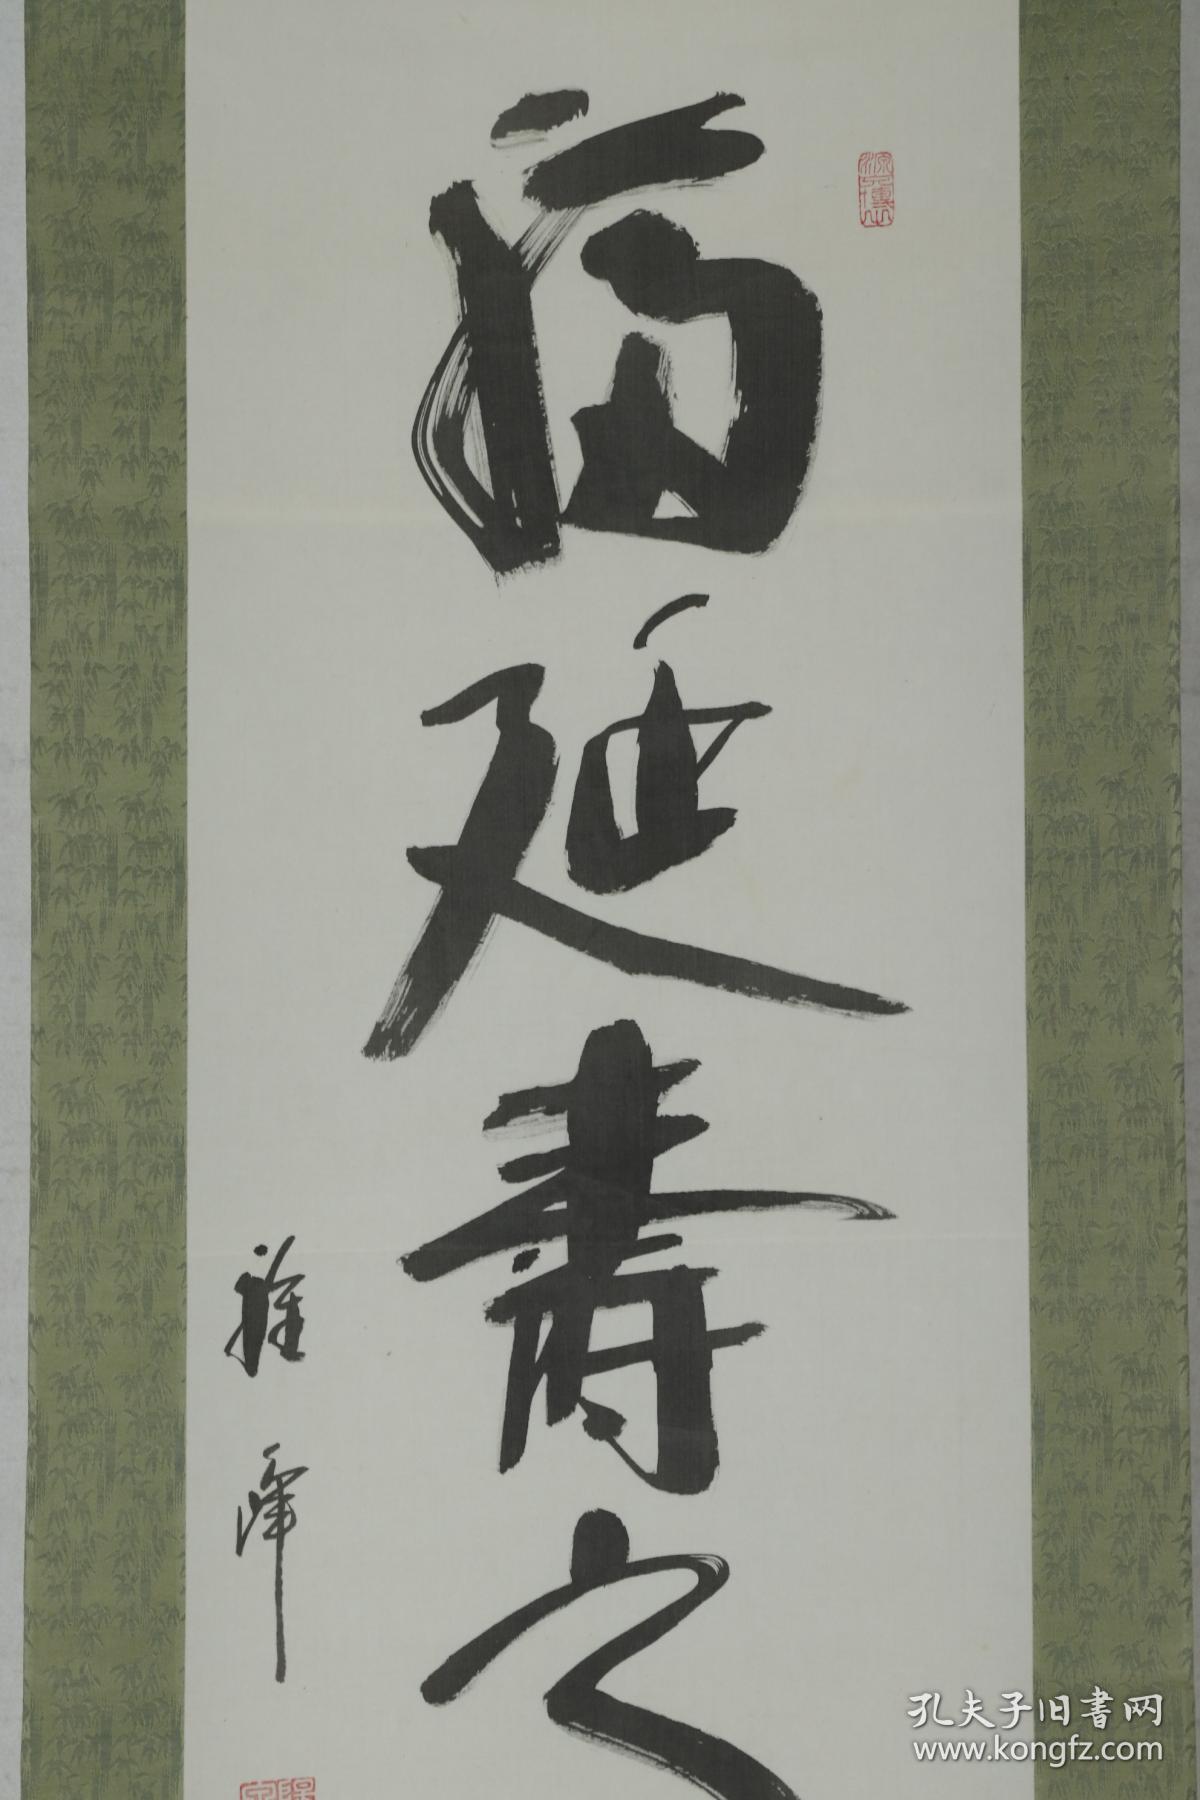 福延壽之
雅峰
孔夫子旧書网
www.kongfz.com